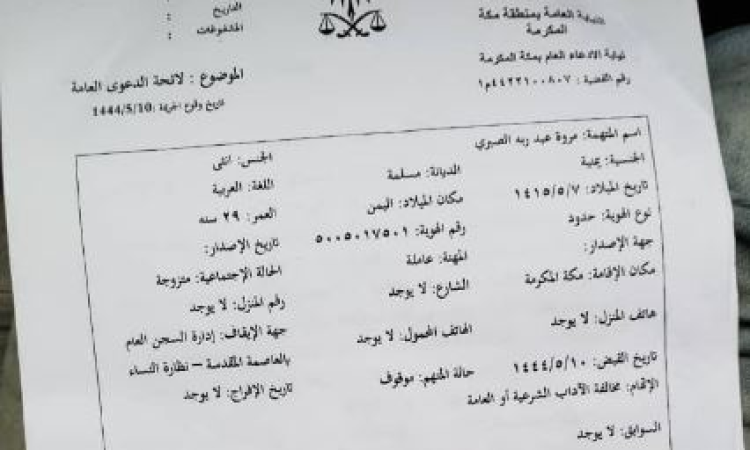 النيابة العامة بمنطقة مكة
المكرمة
نيابة الادعاء العام بمكة المكرمة
رقم القضية : ٤٤٢٢١٠٠٨٠٧م١
التاريخ :
المشفوعات :
الموضوع : لائحة الدعوى العامة
تاريخ وقوع الجريمة :1444/5/10
اسم المتهمة: مروة عبد ربه الصبري الجنس: انثى
الجنسية: يمنية الديانة: مسلمة اللغة: العربية
تاريخ الميلاد: ١٤١٥/٥/٧ مكان الميلاد: اليمن العمر: ٢٩ سنه
نوع الهوية: حدود رقم الهوية: ٥٠٠٥٠١٧٥٠١ تاريخ الإصدار:
جهة الإصدار: المهنة: عاملة الحالة الإجتماعية: متزوجة
مكان الإقامة: مكة المكرمة الشارع: لا يوجد رقم المنزل: لا يوجد
هاتف المنزل: لا يوجد الهاتف المحمول: لا يوجد جهة الإيقاف: إدارة السجن العام
بالعاصمة المقدسة – نظارة النساء
تاريخ القبض: ١٤٤٤/٥/١٠ حالة المتهم: موقوف تاريخ الإفراج: لا يوجد
الإتهام: مخالفة الآداب الشرعية أو العامة
السوابق: لا يوجد